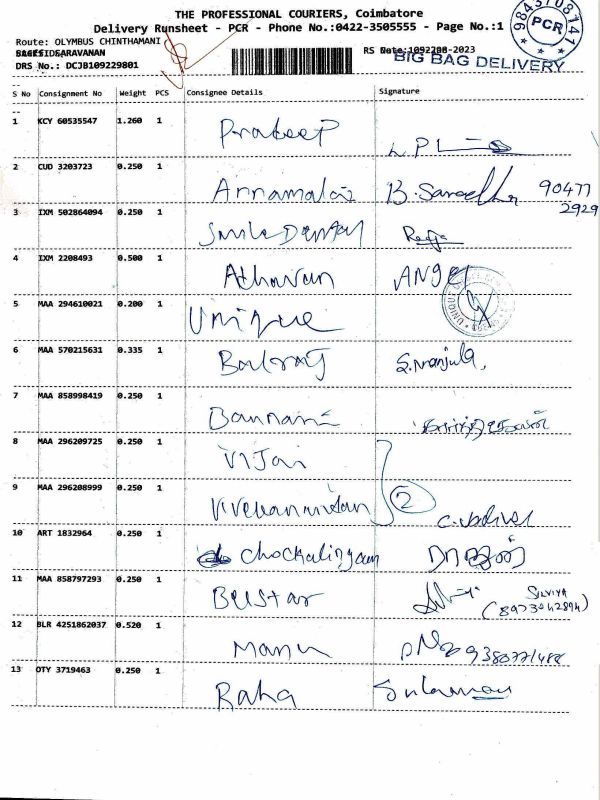 THE PROFESSIONAL COURIERS, Coimbatore
Delivery Runsheet - PCR - Phone No.:0422-3505555 - Page No.:1
Route: OLYMBUS CHINTHAMANI
SARAVANAN
DRS No.: DCJB109229801
BIG BAG DELIVERY
9843708141
PCR
S No Consignment No Weight PCS Consignee Details Signature
1 KCY 60535547 1.260 1 Pradeep
2 CUD 3203723 0.250 1 Annamalai B. 90477
2929
3 IXM 502864094 0.250 1 Smile Dental
4 IXM 2208493 0.500 1 Atharvan ANGEL
5 MAA 294610021 0.200 1 Unique
6 MAA 570215631 0.335 1 Balraj S. Manjula,
7 MAA 858998419 0.250 1
8 MAA 296209725 0.250 1 Vijai
9 MAA 296208999 0.250 1 Vivekanandan 2 C. Vadivel
10 ART 1832964 0.250 1 Chockalingam
11 MAA 858797293 0.250 1 Bustar
12 BLR 4251862037 0.520 1 Manu
13 OTY 3719463 0.250 1 Raha Sulaiman